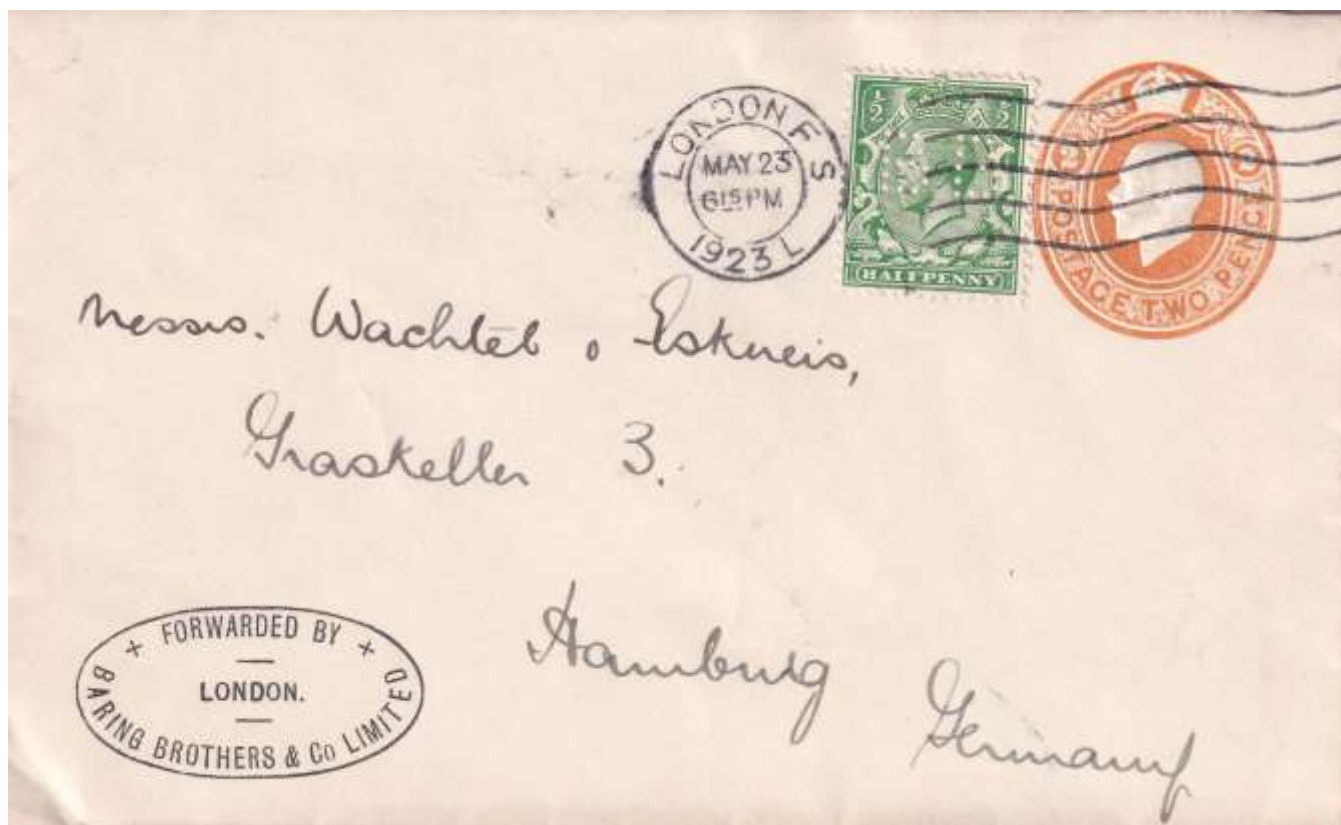 LONDON F S
MAY 23
6 15 PM
1923 L
½ ½
HALFPENNY
POSTAGE TWO PENCE
Messrs. Wachtel & Eskreis,
Graskeller 3.
Hamburg
Germany
+ FORWARDED BY +
LONDON.
BARING BROTHERS & Co LIMITED